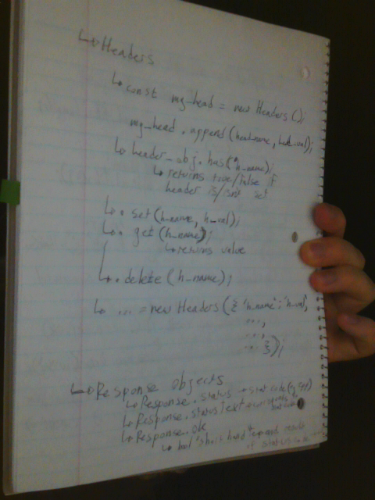 ↳ Headers
↳ const my_head = new Headers();
my_head.append(head_name, head_val);
↳ header_obj.has(h_name);
↳ returns true/false if
header is/isnt set
↳ .set(h_name, h_val);
↳ .get(h_name);
↳ returns value
↳ .delete(h_name);
↳ ... = new Headers({'h_name': 'h_val',
...,
...,
... });
↳ Response Objects
↳ Response.status → stat code
↳ Response.statusText
↳ Response.ok
↳ bool short hand